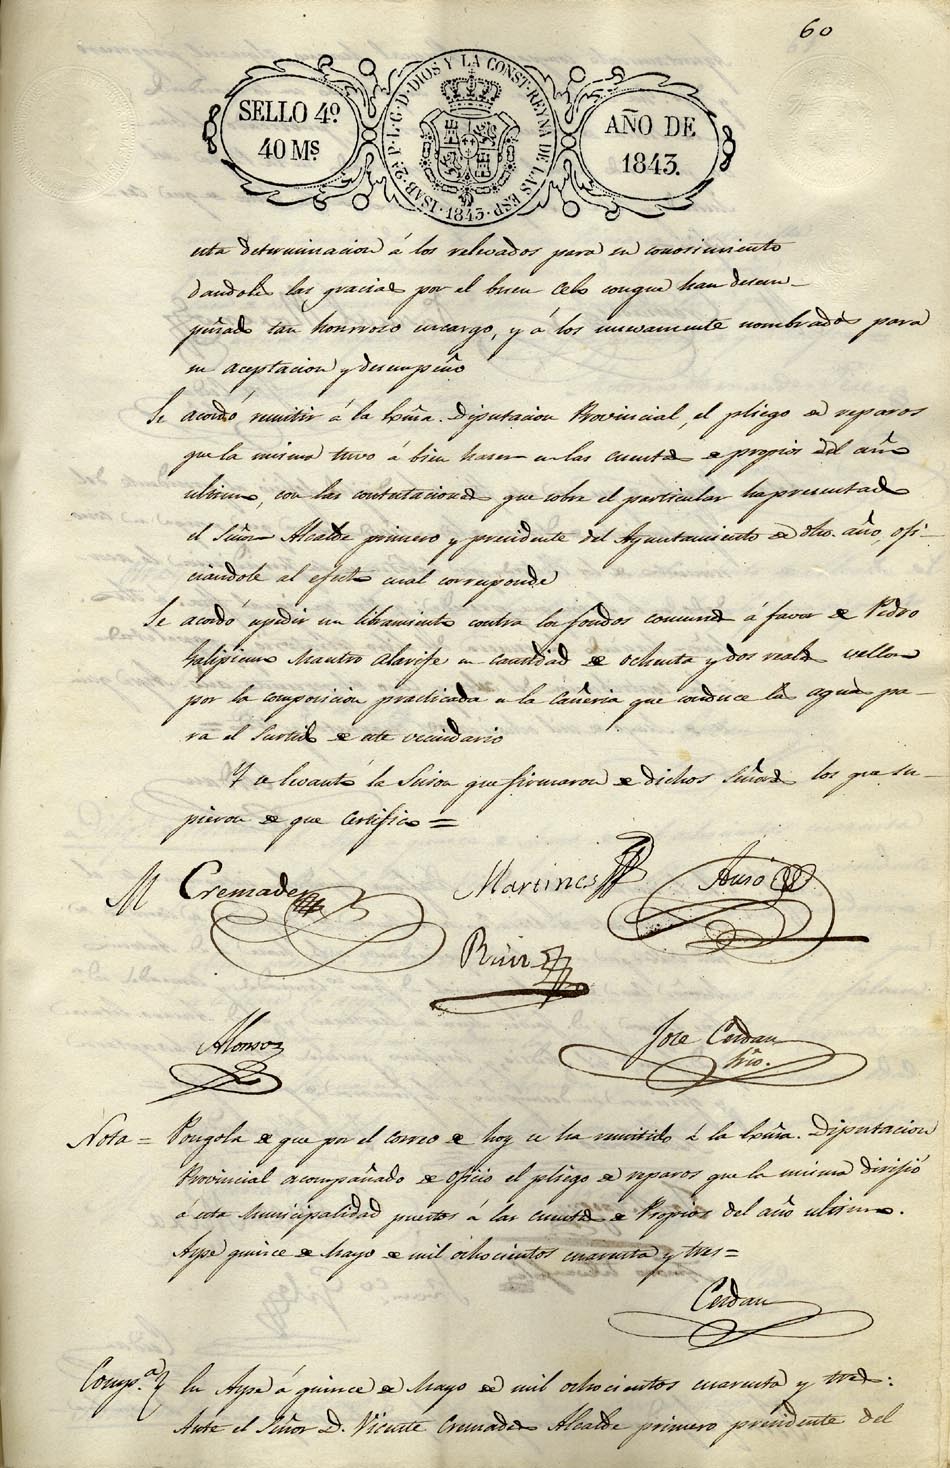 60
SELLO 4º
40 Ms
ISAB. 2ª P. L. G. D. DIOS Y LA CONST. REYNA DE LAS ESP.
1843
AÑO DE
1843.
esta determinacion á los relevados para su conocimiento
dandoles las gracias por el buen Celo conque han desem-
peñado tan honrroso encargo, y á los nuevamente nombrados para
su aceptacion y desempeño
Se acordó remitir á la Exma. Diputacion Provincial, el pliego de reparos
que la misma tuvo á bien haser en las cuentas de propios del año
ultimo, con las contestaciones que sobre el particular ha presentado
el Señor Alcalde primero y presidente del Ayuntamiento de dho. año, ofi-
ciandole al efecto cual corresponde
Se acordó espedir un libramiento contra los fondos comunes á favor de Pedro
Galipienso Maestro Alarife en cantidad de ochenta y dos reales vellon
por la composicion practicada en la Cañeria que conduce las aguas pa-
ra el Surtido de este vecindario
Y se levantó la Sesion que firmaron de dichos Señores los que su-
pieron de que Certifico =
M Cremades
Martines
Auso
Ruiz
Alonso
Jose Cerdan
Srio.
Nota = Pongola de que por el correo de hoy se ha remitido á la Exma. Diputacion
Provincial acompañado de oficio el pliego de reparos que la misma dirijió
á esta Municipalidad puestos á las cuentas de Propios del año ultimo.
Aspe quince de Mayo de mil ochocientos cuarenta y tres =
Cerdan
Comp.ª En Aspe á quince de Mayo de mil ochocientos cuarenta y tres:
Ante el Señor D. Vicente Cremades Alcalde primero presidente del